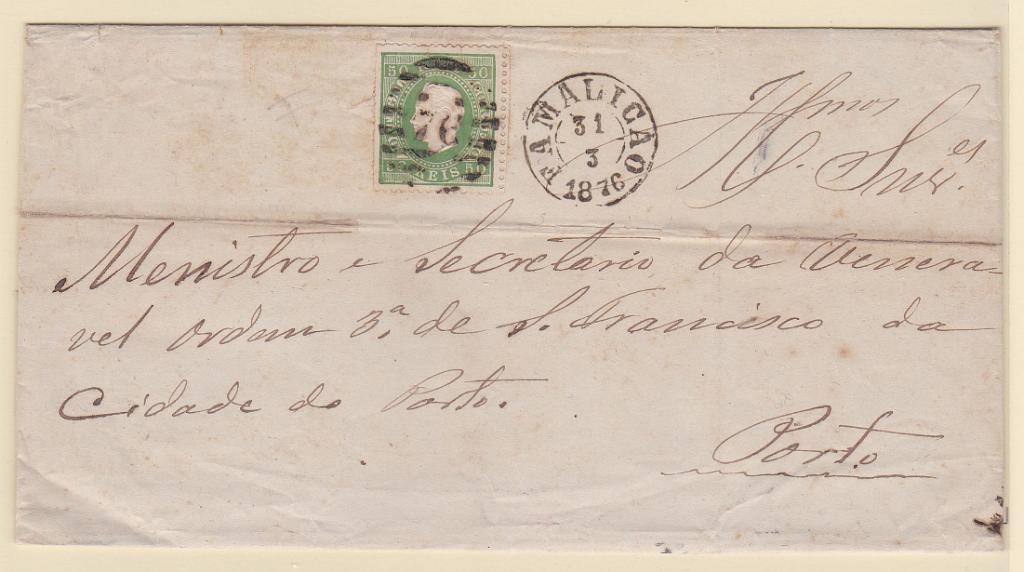 50 50
REIS
FAMALICÃO
31
3
1876
Illmos
Snres.
Menistro e Secretario da Venera-
vel ordem 3ª. de S. Francisco da
Cidade do Porto.
Porto